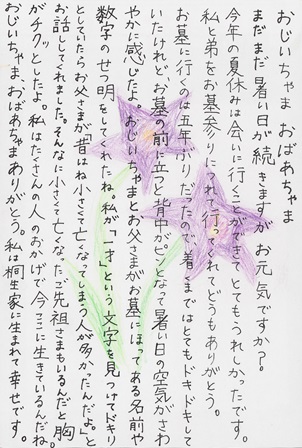 おじいちゃま おばあちゃま
まだまだ暑い日が続きますがお元気ですか？。
今年の夏休みは会いに行くことができてとてもうれしかったです。
私と弟をお墓参りにつれて行ってくれてどうもありがとう。
お墓に行くのは五年ぶりだったので着くまではとてもドキドキして
いたけれどお墓の前に立つと背中がピンとなって暑い日の空気がさわ
やかに感じたよ。おじいちゃまとお父さまがお墓にほってある名前や
数字のせつ明をしてくれたね。私が「一才」という文字を見つけてドキリ
としていたらお父さまが「昔はね小さくて亡くなってしまう人が多かったんだよ。」と
お話してくれました。そんなに小さくて亡くなったご先祖さまもいるんだと胸
がチクッとしたよ。私はたくさんの人のおかげで今ここに生きているんだね。
おじいちゃま、おばあちゃまありがとう。私は桐生家に生まれて幸せです。